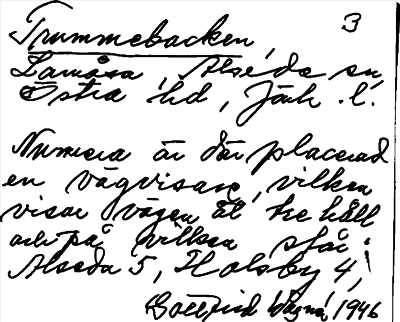 Trummebacken, 3
Lamåsa, Alseda sn,
Östra hd, Jönk. l.
Numera är där placerad
en vägvisare, vilken
visar vägen åt tre håll
och på vilken står:
Alseda 5, Holsby 4,
Gottfrid Wagnå, 1946